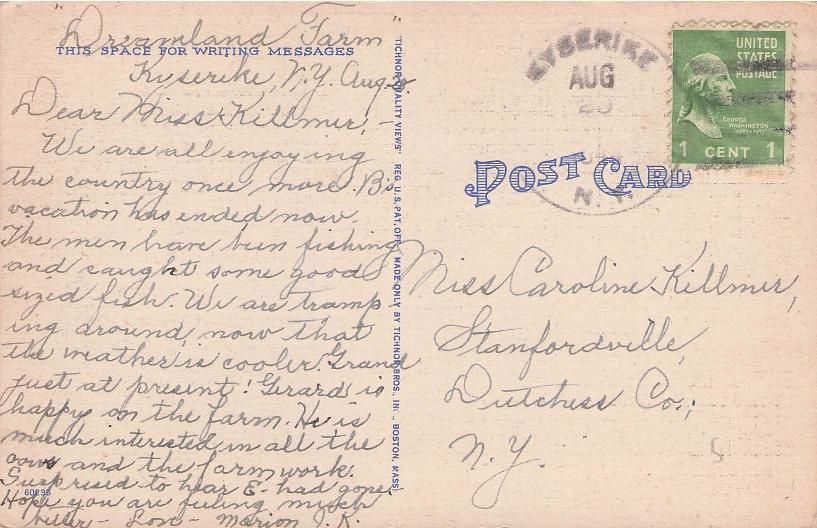 Dreamland Farm
THIS SPACE FOR WRITING MESSAGES
Kyserike, N.Y. Aug.
Dear Miss Killmer, -
We are all enjoying
the country once more. B's
vacation has ended now.
The men have been fishing
and caught some good
sized fish. We are tramp-
ing around, now that
the weather is cooler. Grand
just at present! Gerard is
happy on the farm. He is
much interested in all the
cows and the farm work.
Surprised to hear E- had gone.
Hope you are feeling much
better - Love - Marion J. K.
60235
"TICHNOR QUALITY VIEWS" REG. U. S. PAT. OFF. MADE ONLY BY TICHNOR BROS., INC., BOSTON, MASS.
KYSERIKE
AUG
20
N. Y.
UNITED
STATES
POSTAGE
GEORGE
WASHINGTON
1 CENT 1
POST CARD
Miss Caroline Killmer,
Stanfordville,
Dutchess Co.,
N.Y.